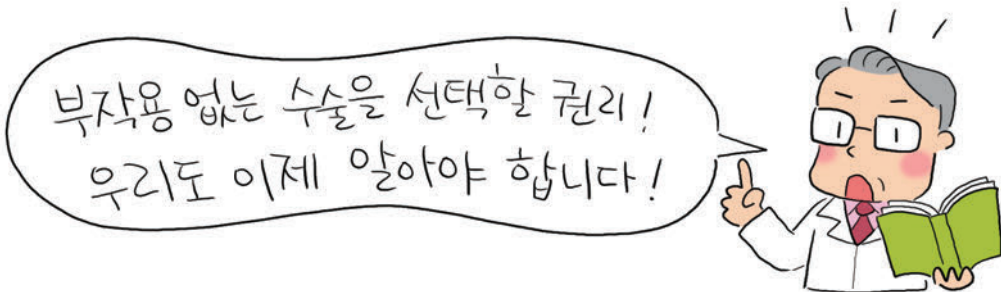 부작용 없는 수술을 선택할 권리!
우리도 이제 알아야 합니다!